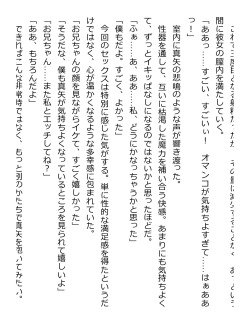 間に彼女の膣内を満たしていく。
「ああっ……すごい、すごいぃ！　オマンコが気持ちよすぎて……はぁああ
っ！」
　室内に真矢の悲鳴のような声が響き渡った。
　性器を通して、互いに枯渇した魔力を補い合う快感。あまりにも気持ちよく
て、ずっとイキっぱなしになるのではないかと思ったほどだ。
「ふぁ……あ、ああ……私、どうにかなっちゃうかと思った」
「僕もだよ。すごく、よかった」
　今回のセックスは特別に感じた気がする。単に性的な満足感を得たというだ
けではなく、心が温かくなるような多幸感に包まれていた。
「お兄ちゃんの顔を見ながらイケて、すごく嬉しかった」
「そうだな、僕も真矢が気持ちよくなっているところを見られて嬉しいよ」
「お兄ちゃん……また私とエッチしてね？」
「ああ、もちろんだよ」